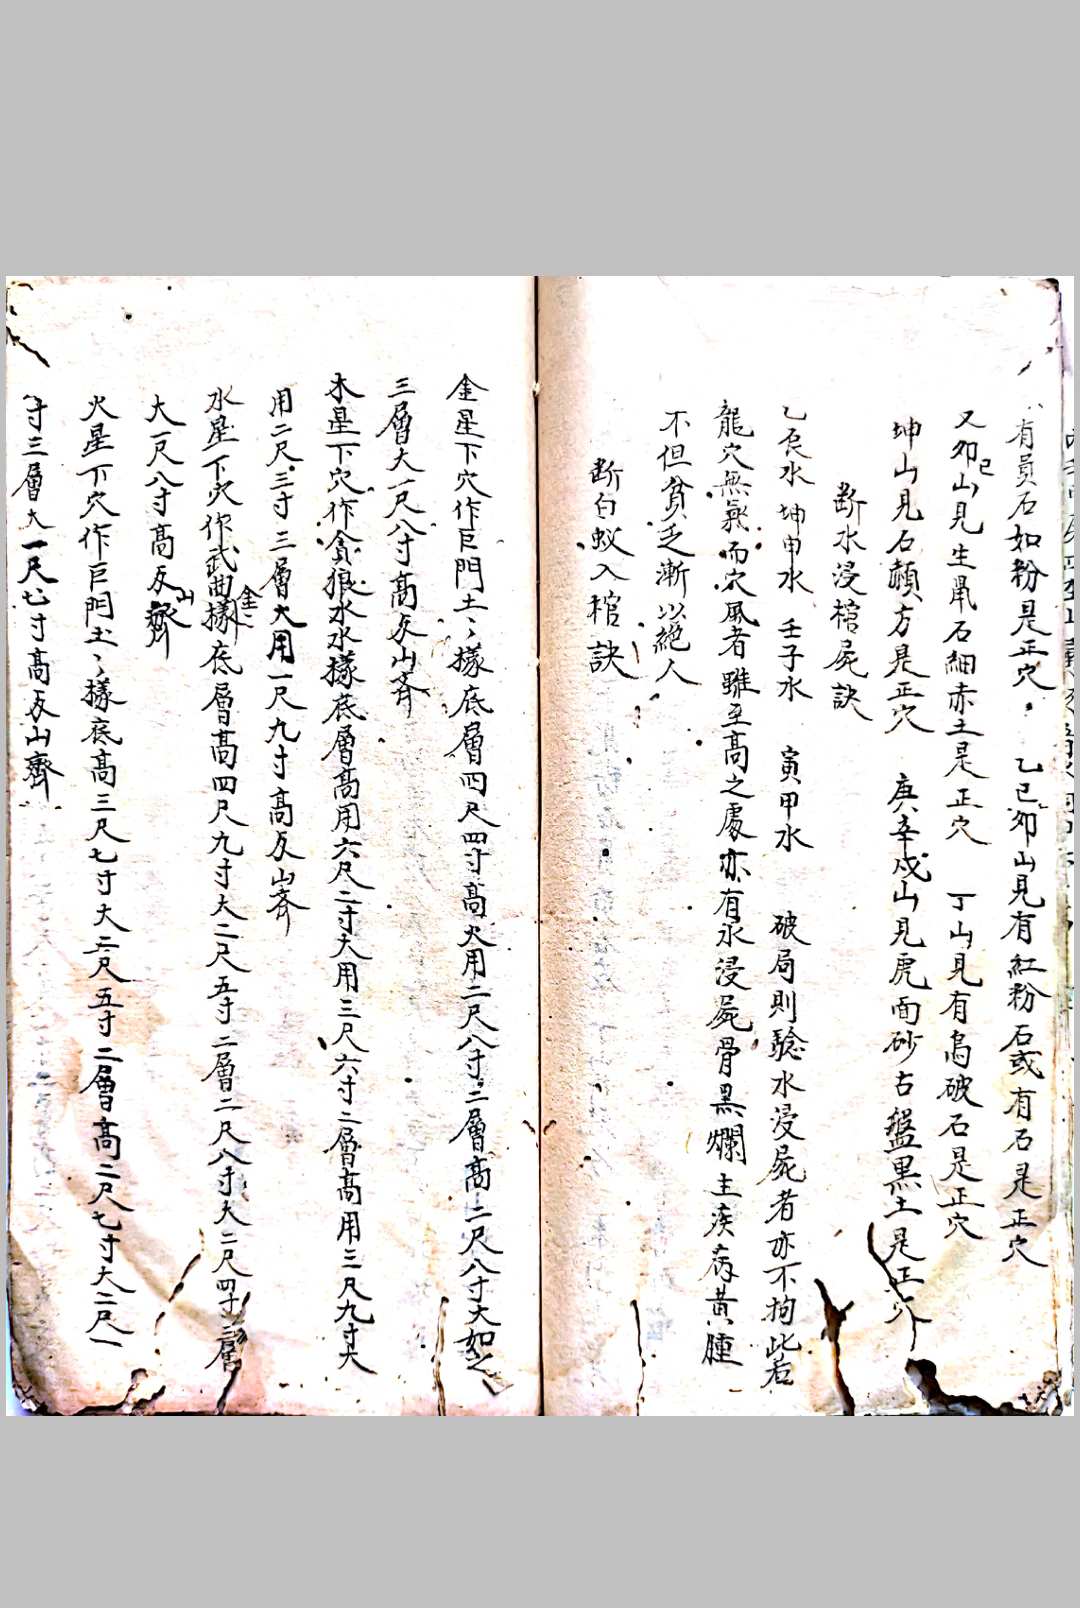 有員石如粉是正穴 乙巳卯山見有紅粉石或有石是正穴
又卯巳山見生鼡石細赤土是正穴 丁山見有烏破石是正穴
坤山見石頭方是正穴 庚辛戌山見虎面砂古盤黑土是正穴
断水浸棺屍訣
乙辰水 坤申水 壬子水 寅甲水 破局則驗水浸屍者亦不拘此若
龍穴無氣而穴風者雖至高之處亦有水浸屍骨黑爛主疾病黃腫
不但貧乏漸以絕人
断白蚁入棺訣
金星下穴作巨門土〻樣底層四尺四寸高大用二尺八寸二層高二尺八寸大如之
三層大一尺八寸高反山斉
木星下穴作貪狼水水樣底層高用六尺二寸大用三尺六寸二層高用三尺九寸大
用二尺三寸三層大用一尺九寸高反山斉
水星下穴作武曲金樣底層高四尺九寸大二尺五寸二層二尺八寸大二尺四寸三層
大一尺八寸高反山齊
火星下穴作巨門土〻樣底高三尺七寸大二尺五寸二層高二尺七寸大二尺一
寸三層大一尺七寸高反山齊